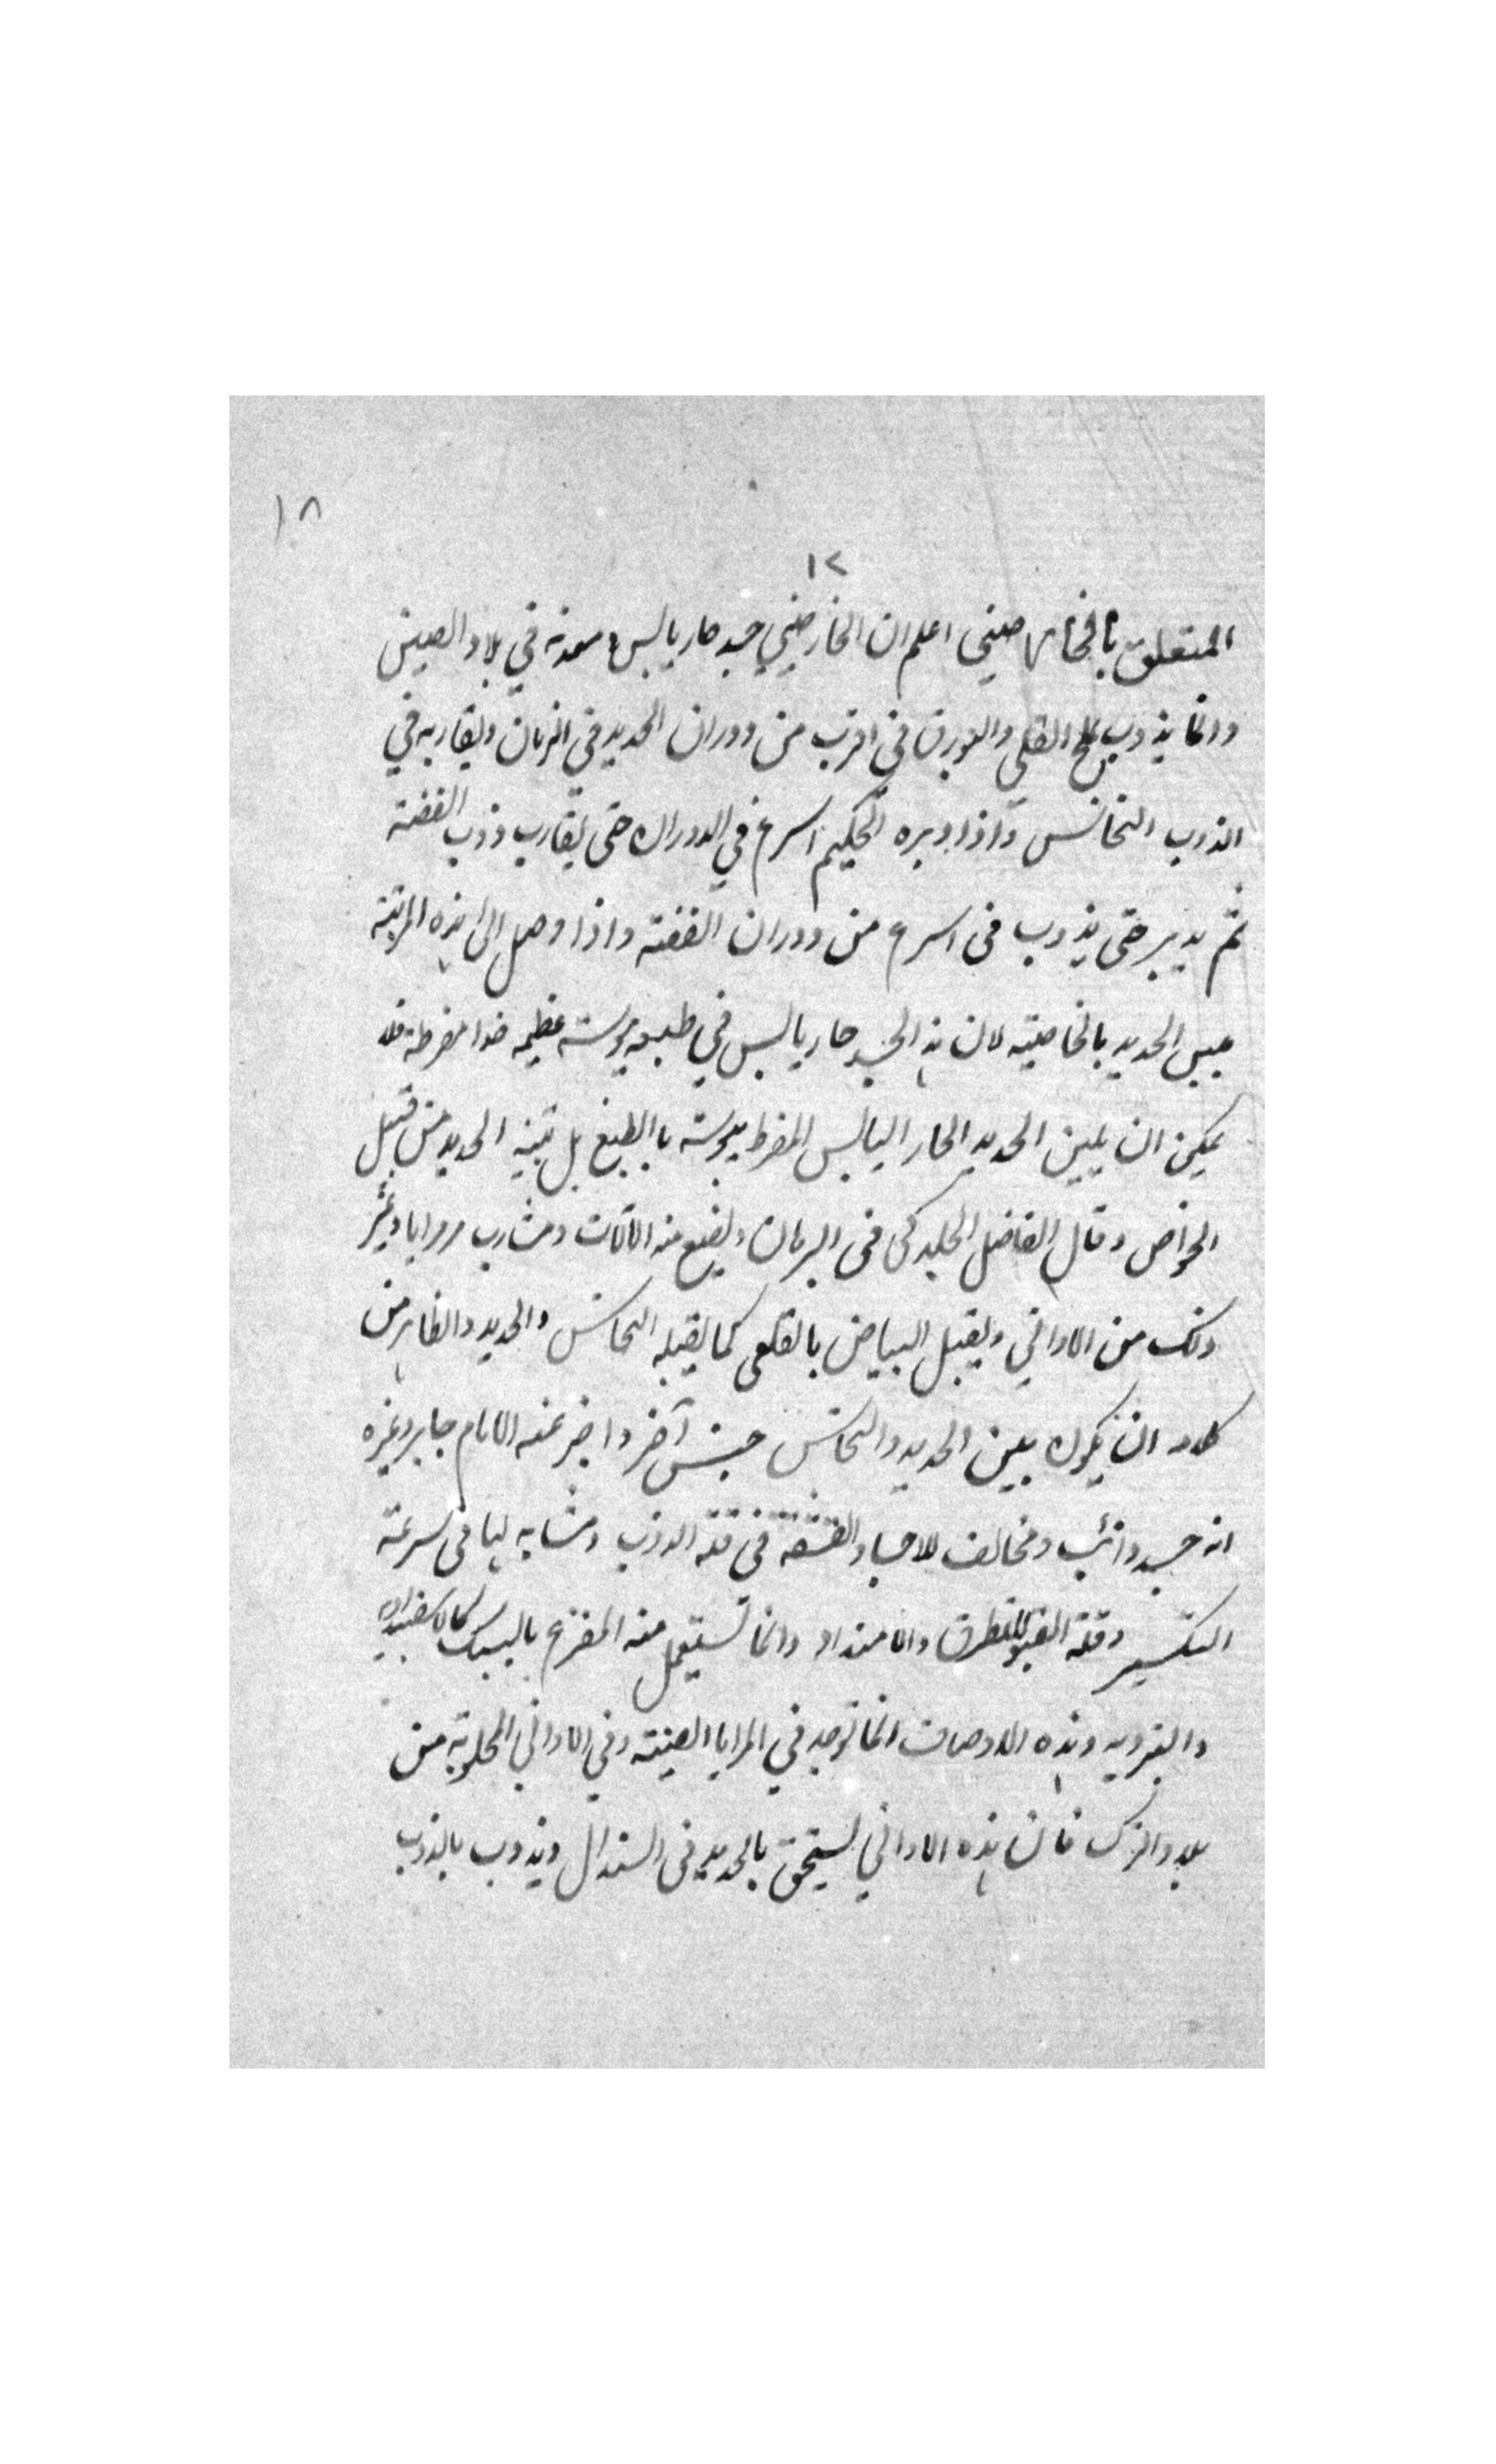 ١٨
١٢
المتعلق بالخارصيني اعلم ان الخارصيني جسد حار يابس ومعدنه في بلاد الصين
وانما يذوب بملح القلي والبورق في اقرب من دوران الحديد في الزمان ويقاربه في
الذوب النحاس واذا دبره الحكيم اسرع في الدوران حتى يقارب ذوب الفضة
ثم يدبر حتى يذوب في اسرع من دوران الفضة واذا وصل الى هذه المرتبة
الحديد بالخاصية لان هذا الجسد حار يابس في طبعه يبوسته عظيمه مفرطة فلا
يمكن ان يلين الحديد الحار اليابس المفرط يبوسته بالطبع بل الحديد من قبيل
الخواص وقال الفاضل الجلدكي في البرهان ويصنع منه الالات ومشارب ومرايا وغير
ذلك من الاواني ويقبل البياض بالقلعي كما يقبله النحاس والحديد والظاهر من
كلامه ان يكون بين الحديد والنحاس جنس آخر واخبر عنه الامام جابر وغيره
انه جسد ذائب ومخالف للاجساد في قلة الذوب ومشابه لها في سرعة
التكسير وقلة القبول للتطرق والامتداد وانما تستعمل منه المفرغ بالسبك كالاسفيداد
وهذه الاوصاف انما توجد في المرايا الصينية وفي الاواني المجلوبة من
بلاد الترك فان هذه الاواني يستحق بالحديد في السندال ويذوب بالذوب